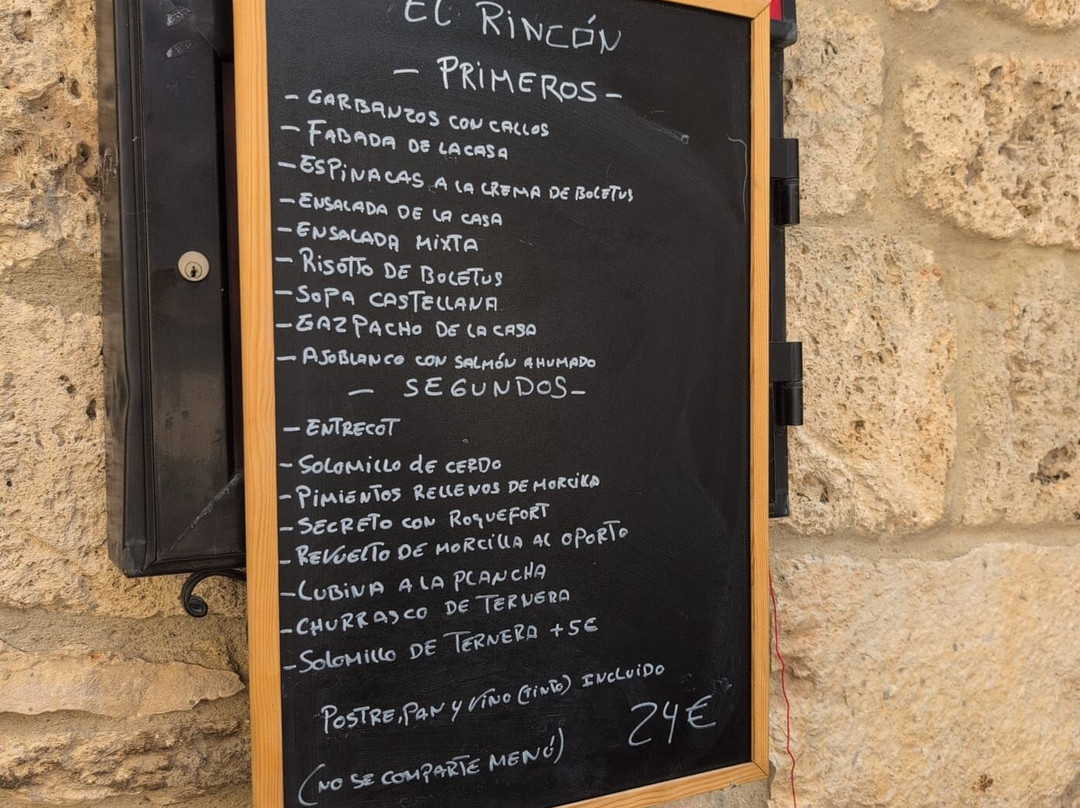 EL RINCÓN
- PRIMEROS -
- GARBANZOS CON CALLOS
- FABADA DE LA CASA
- ESPINACAS A LA CREMA DE BOLETUS
- ENSALADA DE LA CASA
- ENSALADA MIXTA
- RISOTTO DE BOLETUS
- SOPA CASTELLANA
- GAZPACHO DE LA CASA
- AJOBLANCO CON SALMÓN AHUMADO
- SEGUNDOS -
- ENTRECOT
- SOLOMILLO de CERDO
- PIMIENTOS RELLENOS DE MORCILLA
- SECRETO CON ROQUEFORT
- REVUELTO DE MORCILLA AL OPORTO
- LUBINA A LA PLANCHA
- CHURRASCO DE TERNERA
- SOLOMILLO DE TERNERA +5€
POSTRE, PAN Y VINO (TINTO) INCLUIDO
24€
(NO SE COMPARTE MENÚ)